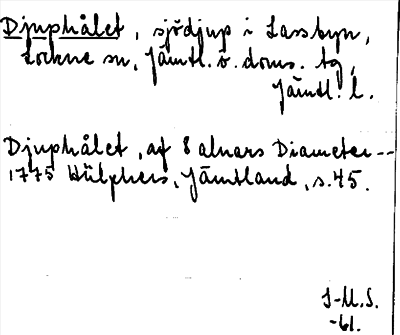 Djuphålet, sjödjup i Lassbyn,
Lockne sn, Jämtl. ö. doms. tg,
Jämtl. l.
Djuphålet, af 8 alnars Diameter --
1775 Hülphers, Jämtland, s. 45.
I-M.S.
-61.